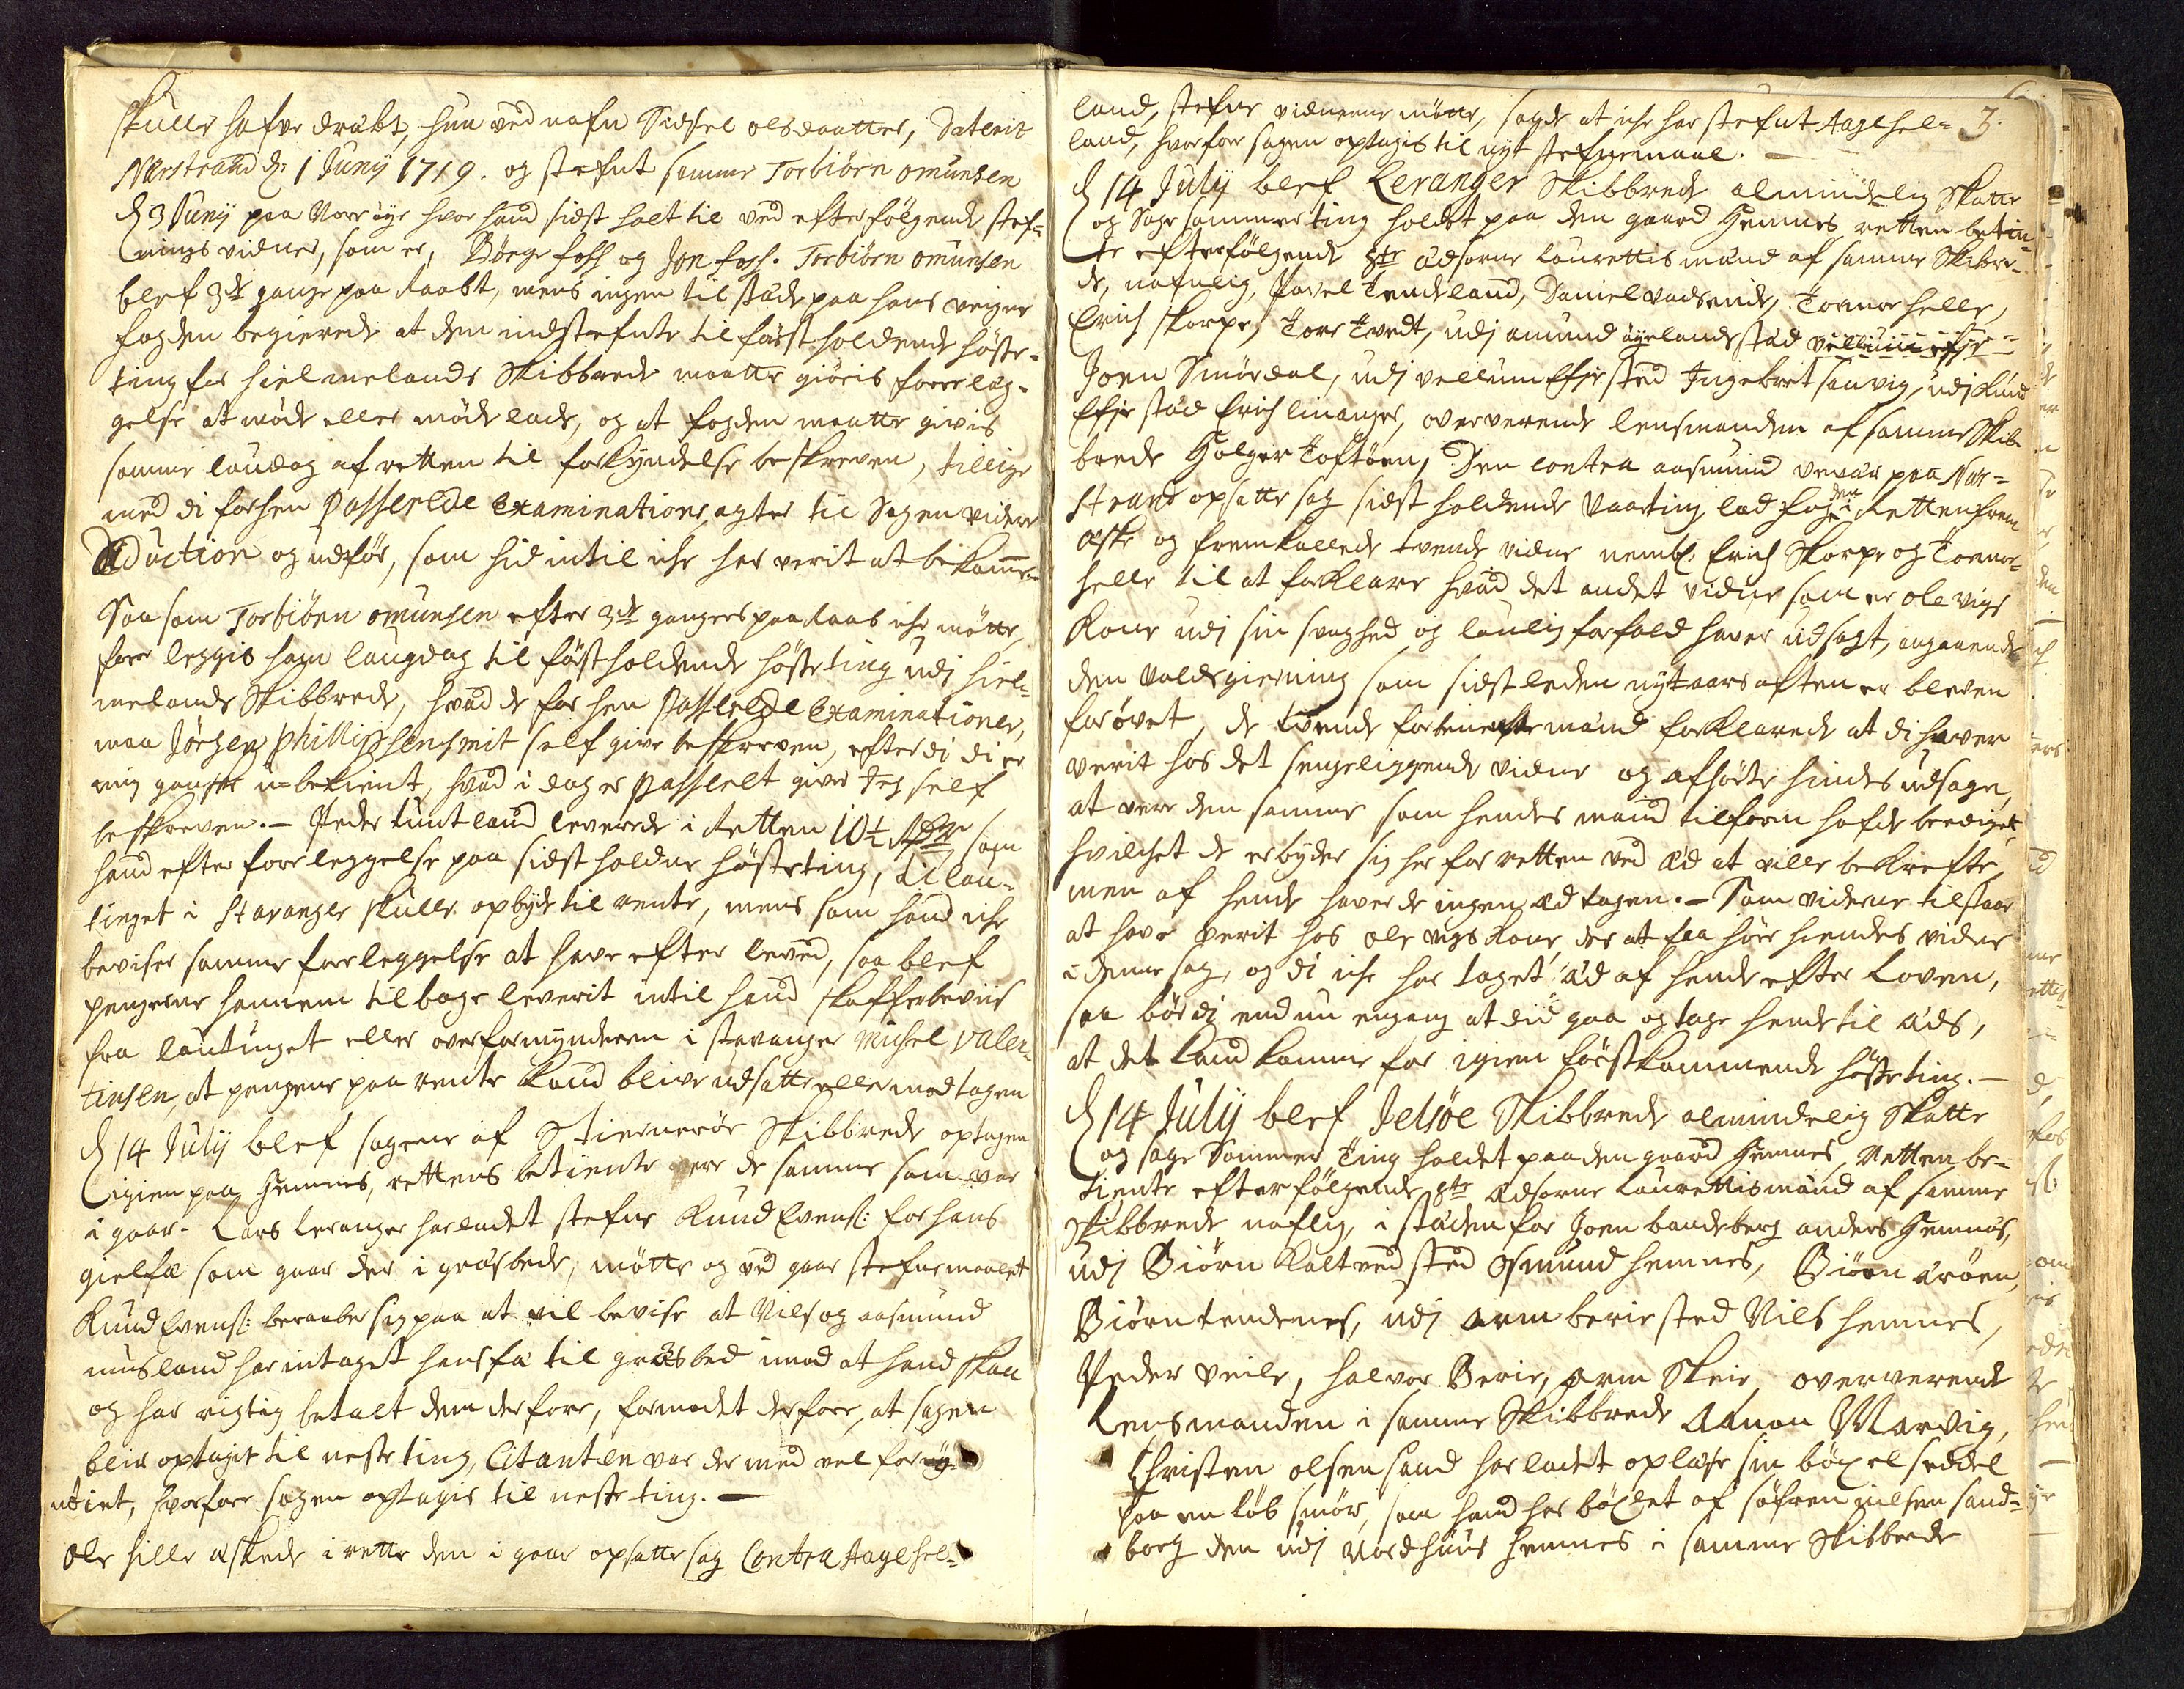 skulle hafve dræbt, hun ved nafn Sidsel olsdaatter, Daterit
Nerstrand d: 1 Junij 1719. og stefnt samme Torbiörn omunsen
d 3 Junij paa Norröye hvor hand sidst holt til ved efterfölgende stef-
nings vidner, som er, Börge foss og Jon foss. Torbiörn omunsen
blef 3de gange paa Raabt, mens ingen til stæde paa hans veigne
fogden begierede at den indstefnte til först holdende höste-
ting for hielmelands Skibbrede maatte giöris foreleg-
gelse at möde eller möde lade, og at fogden maatte givis
samme laudag af retten til forkyndelse beskreven, tillige
med di forhen Passerede Examinationer, agter til Sagen videre
Aduction og udför, som hid intil iche har verit at bekomme.
Saa som Torbiörn omunsen efter 3de gangers paa Raab iche mötte,
fore leggis ham laugdag til först holdende hösteting udj hiel-
melands Skibbrede, hvad de for hen Passerede Examinationer,
maa Jörgen Phillipsen smit self give beskreven, efterdi di er
mig gandske u-bekient, hvad i dag er Passerelt giver Jeg self
beskreven. - Peder tuntland leverede i Retten 10½ som
hand efter foreleggelse paa sidst holdne hösteting, til lau-
tinget i Stavanger skulle opbyde til rente, mens som hand iche
beviser samme foreleggelse at have efter leved, saa blef
pengerne hannem tilbage leverit intil hand skaffer beviis
fra lautinget eller overformynderen i stavanger Michel Valen-
tinsen, at pengene paa rente kand blive udsatte eller modtagen
d 14 Julij blef sagerne af Stierneröe Skibbrede optagen
igien paa Hemnes, rettens betiente vare de samme som var
i gaar. Lars leranger har ladet stefne Knud Evens: for hans
gielfæ som gaar der i græsbede, mötte og ved gaar stefnemaalet
Knud Evens: beraaber sig paa at vil bevise at Nils og aasmund
musland har intaget hans fæ til græsbed imod at hand skan
og har rigtig betalt dem derfore, formodet derfore, at sagen
bleir optagit til neste ting, Citanten var der med vel fornöy-
nöiet, hvorfore sagen optagis til neste ting. -
Ole hille æskede i rette den i gaar opsatte sag Contra Aagehel-
3.
land, stefne vidnerne mötte, sagde at iche har stefnt Aagehel-
land, hvorfor sagen optagis til nyt stefnemaal. -
d 14 Julij blef Leranger Skibbrede almindelig Skatte
og Sage sommerting holdet paa den gaard Hemnes, retten betin-
te efterfölgende 8te Edsorne laurettismænd af samme Skibre-
de, nafnlig, Povel Tendeland, Daniel vadsende, Tormoe helle,
Erich Skorpe, Tore Tvedt, udj amund öyelands stæd
Joen Smördal, udj vellum Efje sted Ingebret sanvig, udj Knud
Efje stæd Erich linanger, oververende lensmanden af samme Skib-
brede Holger Toftöen, Den contra aasmund vevær paa Ner-
strand opsatte sag sidst holdende Vaarting lod fogden i Retten frem
æske og fremkallede tvende vidne nembl: Erich Skorpe og Tormoe-
helle til at forklare hvad det andet vidne som er ole vigs
Kone udj sin svaghed og laulig forfald haver udsagt, angaaende
den voldsgierning som sidstleden nytaarsaften er bleven
forövet, de tvende forbenefte mænd forklarede at di haver
verit hos det sengeliggende vidne og afhörte hindes udsagn,
at vere den samme som hendes mand tilforn hafde beediget,
hvilchet de erbyder sig her for retten ved Æd at ville bekrefte,
men af hende haver de ingen æd tagen. - Som vidnerne tilstaar
at have verit hos ole vigs kone, der at faa höre hiendes vidne
i denne sag, og di iche har taget æd af hende efter loven,
saa bör di endnu engang at did gaa og tage hende til æds,
at det kand komme for igien förstkommende hösteting. -
d 14 Julij blef Jelsöe Skibbrede almindelig Skatte
og sage Sommer Ting holdet paa den gaard Hemnes, Retten be-
tiente efterfölgende 8te Edsorne Laurettismænd af samme
Skibbrede naflig, i stæden for Joen bandeberg anders Hemnes,
udj Biörn kaltved sted Osmund hemnes, Biörn æröen,
Biörn tendenes, udj arm berie sted Nils hemnes,
Peder Veile, halvor Berie, arm Skeie, oververende
Lensmanden i samme Skibbrede Amon Marvig,
Christen olsen sand har ladet oplæse sin böxelseddel
paa en löb smör, som hand har böxlet af söfren nilsen sand-
borg den udj Nordhuus hemnes i samme Skibbrede